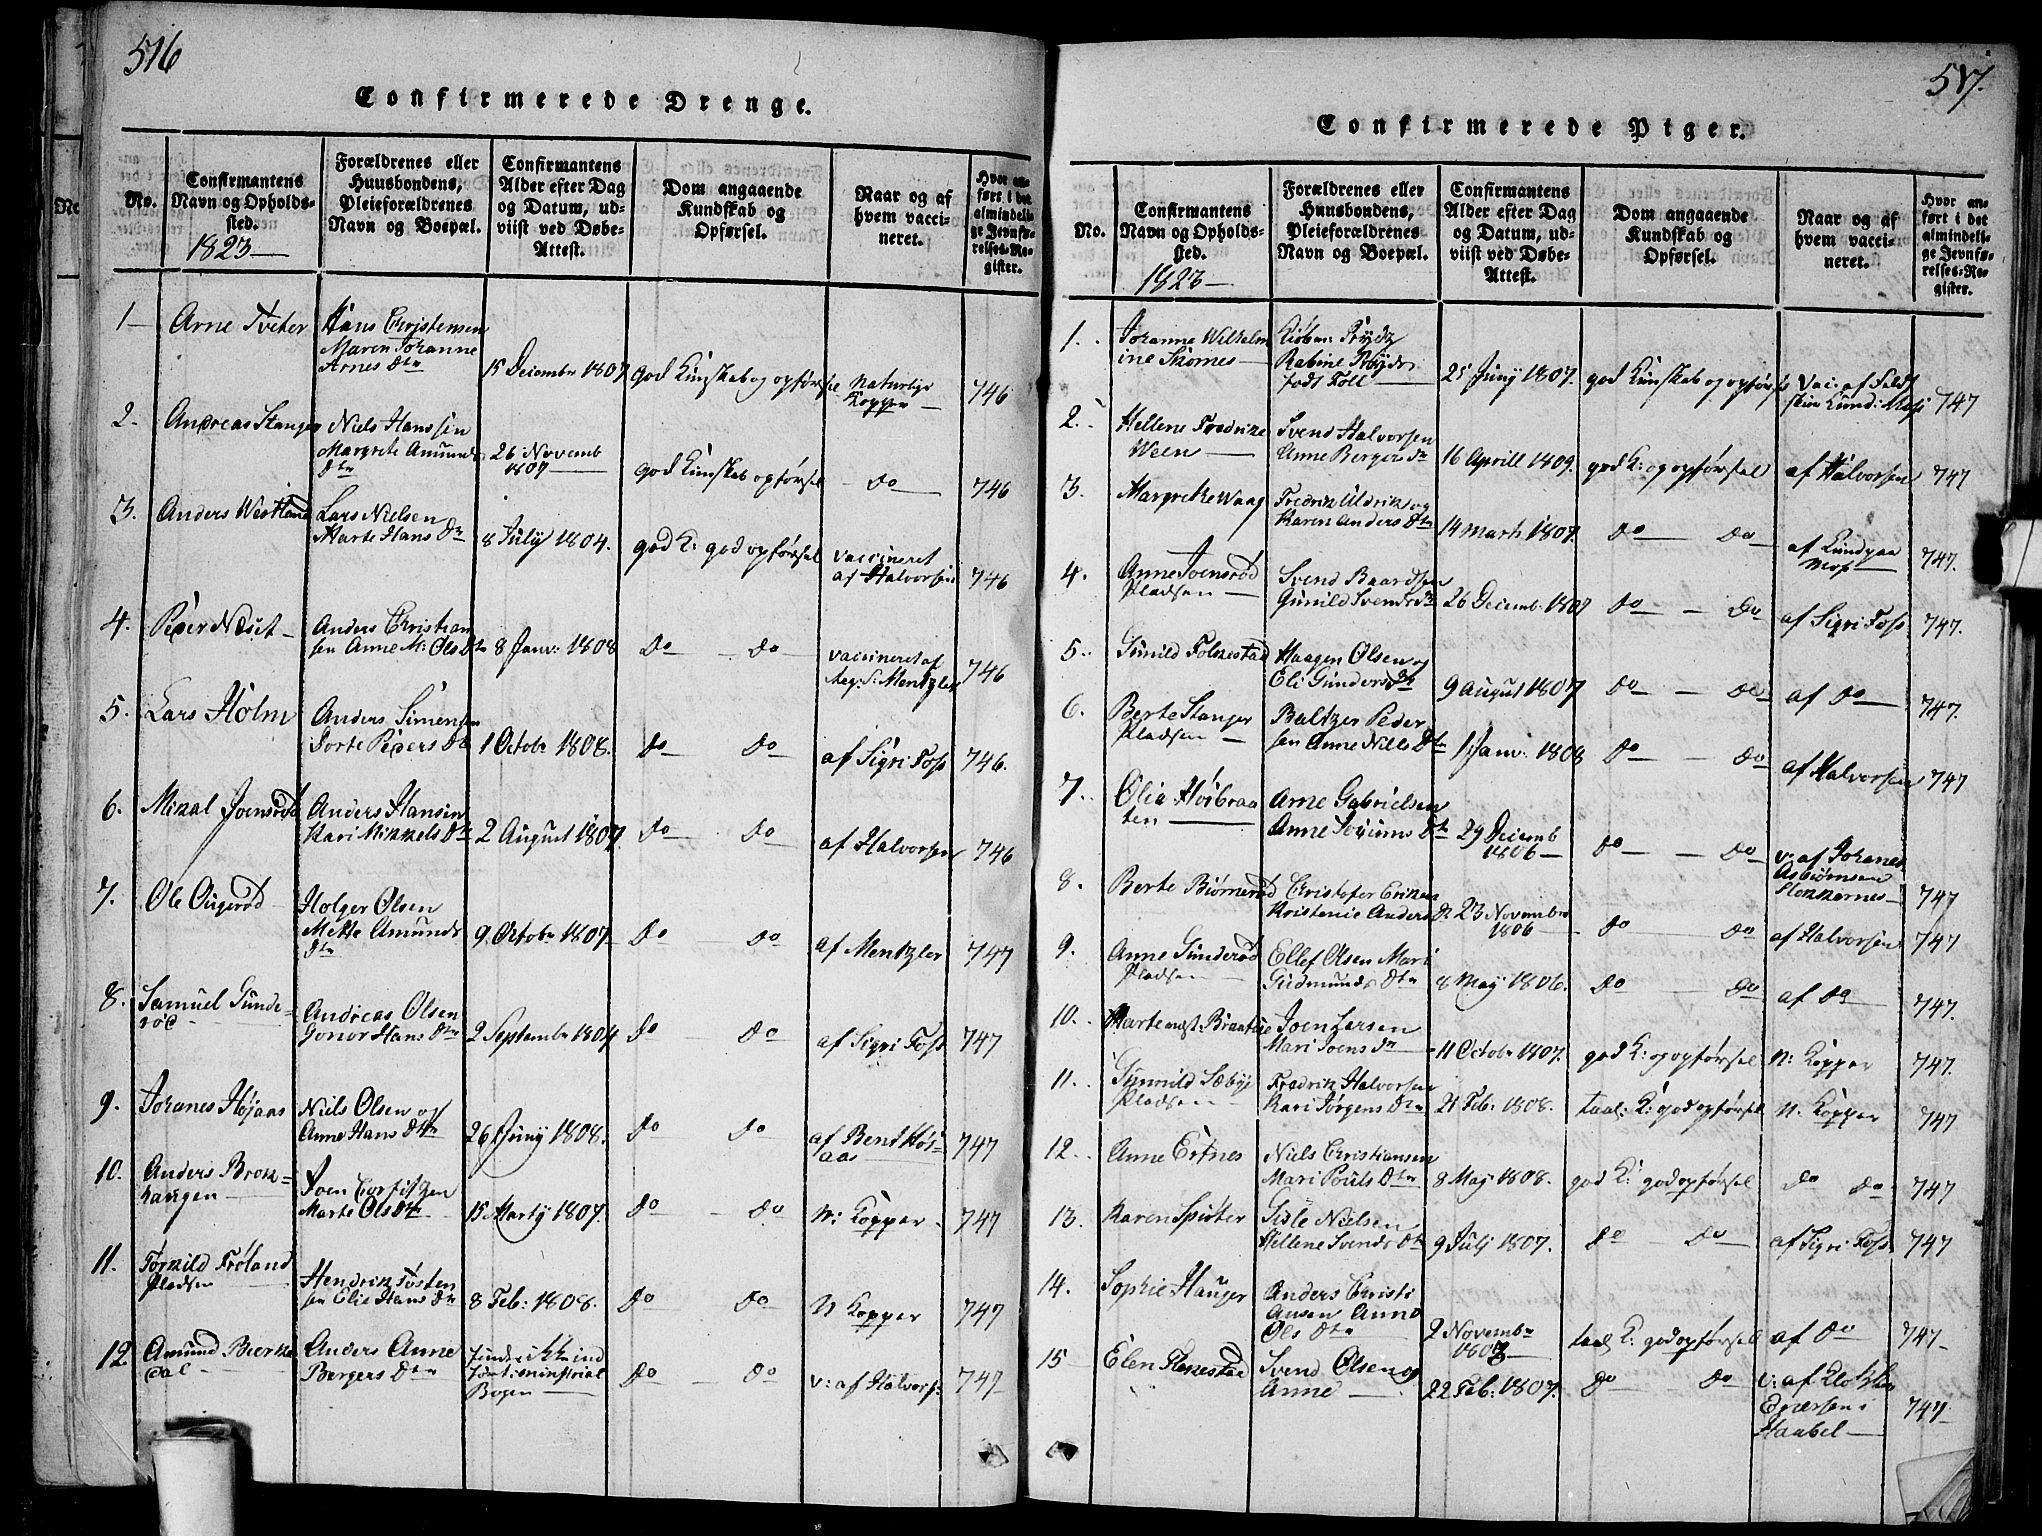 516
Confirmerede Drenge.
No.
Confirmantens
Navn og Opholds-
sted.
1823
Forældrenes eller
Huusbondens,
Pleieforældrenes
Navn og Boepæl.
Confirmantens
Alder efter Dag
og Datum, ud-
viist ved Døbe-
Attest.
Dom angaaende
Kundskab og
Opførsel.
Naar og af
hvem vacci-
neret.
Hvor an-
ført i det
almindeli-
ge Jevnfø-
relses-Re-
gister.
1
Arne Tveter
Hans Christensen
Maren Johanne
Arnes Dtr
15 Decembr 1807
god Kunskab og opførsel
Naturlige
Kopper
746
2.
Andreas Stanger
Niels Hanssen
Margrete Amunds
Dtr
26 Novemb
1807
god Kunskab opførsel
do
746
3.
Anders Westland
Lars Nielsen
Marte Hans Dr
8 July 1804.
god K: god opførsel
vaccineret
af Halvorsen
746
4.
Peder Næset
Anders Christian
sen Anne M: Ols Dtr
8 Janv: 1808
do do
vaccineret af
Reg: S: Mentzler
746
5.
Lars Holm
Anders Simensen
Dorte Peders Dr
1 Octobr 1808.
do do
af Sigri Foss
746.
6.
Mikal Joensrød
Anders Hansen
Kari Mikkels Dtr
2 August 1807
do do
af Halvorsen
746
7.
Ole Ougerød
Holger Olsen
Mette Amunds
Dtr
9 Octobr 1807
do do
af Mentzler
747
8.
Samuel Gunde-
rød
Andreas Olsen
Gonor Hans Dtr
2 Septembr 1804
do do
af Sigri Foss
747
9.
Johanes Højaas
Niels Olsen og
Anne Hans Dtr
26 Juny 1808.
do do
af Bent Høi-
aas
747
10.
Anders Brek-
haugen
Joen Corfitzen
Marte Ols Dtr
15 Marty 1807.
do do
N: Kopper
747
11.
Torkild Frøland
Pladsen
Hendrik Tosten
sen Elie Hans Dtr
8 Feb: 1808.
do do
N Kopper
747
12.
Amund Bierke
dal
Anders Anne
Bergers Dtr
findes ikke ind
ført i ministerial
Bogen
do do
v: af Halvors:
747
517.
Confirmerede Piger.
No.
Confirmantens
Navn og Opholds-
sted.
1823
Forældrenes eller
Huusbondens,
Pleieforældrenes
Navn og Boepæl.
Confirmantens
Alder efter Dag
og Datum, ud-
viist ved Døbe-
Attest.
Dom angaaende
Kundskab og
Opførsel.
Naar og af
hvem vacci-
neret.
Hvor an-
ført i det
almindeli-
ge Jevnfø-
relses-Re-
gister.
1.
Johanne Wilhelm
ine Skornes
Kiøbm: Prydz
Rabine Prydz
født Foll
25 Juny 1807.
god Kunskab og opførsel
Vac: af Feldt
skier Lund: Moss
747
2.
Hellene Fredrike
Ween
Svend Halvorsen
Anne Bergers Dr
16 Aprill 1809.
god K: og opførsel
af Halvorsen
747
3.
Margrethe Waag
Fredrik Uldrik og
Karen Anders Dtr
14 Marti 1807.
do do
af
Moss
747.
4.
Anne Joensrød
Pladsen
Svend Baardsen
Gunild Svends Dr
26 Decemb: 1807
do do
af Sigri Foss
747.
5.
Gunild Folkestad
Haagen Olsen og
Eli Gunders Dr
9 August 1807
do do
af do
747.
6.
Berte Stanger
Pladsen
Baltzer Peder
sen Anne Niels Dtr
1 Janv: 1808
do do
af Halvorsen
747
7.
Olia Høibraa
ten
Arne Gabrielsen
Anne Dtr
29 Decemb
1806
do do
v: af Johanes
Asbiørnsen
Stokkernes
747
8.
Berte Biørnerød
Christofer Eriksen
Kristenie Anders Dr
23 Novembr
1806
do do
af Halvorsen
747
9.
Anne Gunderød
Pladsen
Ellef Olsen Mari
Gudmunds Dtr
8 May 1806.
do do
af do
747.
10.
Marte Braaten
Joen Larsen
Mari Joens Dr
11 Octobr 1807.
god K: og opførsel
N: Kopper
747.
11.
Gunnild Sæbye
Pladsen
Fredrik Halvorsen
Kari Jørgens Dtr
21 Feb: 1808.
taal: K: god opførsel
N: Kopper
747
12.
Anne Ertnes
Niels Christiansen
Mari Pouls Dtr
8 Maj 1808.
god K: god opførsel
do do
747
13.
Karen Spiøter
Sisle Nielsen
Hellene Svends Dtr
9 Julj 1807.
do do
af Sigri Foss
747
14.
Sophie Hauger
Anders Christi
ansen Anne
Ols Dtr
2 Novembr
1807
taal K: god opførsel
af do
747
15
Elen Flenestad
Svend Olsen og
Anne
22 Feb: 1807.
do do
v: af
Enersen i
Haabel
747